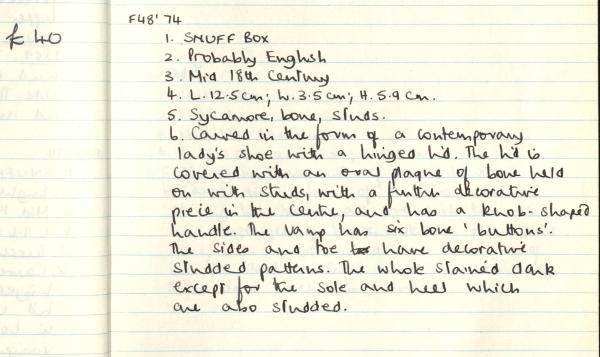 F48'74
£40
1. SNUFF BOX
2. Probably English
3. Mid 18th Century
4. L. 12.5cm; W. 3.5cm; H. 5.9cm.
5. Sycamore, bone, studs.
6. Carved in the form of a contemporary
lady's shoe with a hinged lid. The lid is
covered with an oval plaque of bone held
on with studs, with a further decorative
piece in the centre, and has a knob-shaped
handle. The vamp has six bone 'buttons'.
The sides and toe have decorative
studded patterns. The whole stained dark
except for the sole and heel which
are also studded.